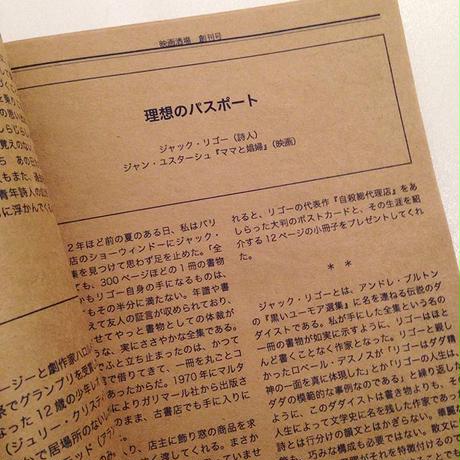 映画酒場 創刊号
理想のパスポート
ジャック・リゴー（詩人）
ジャン・ユスターシュ『ママと娼婦』（映画）
2年ほど前の夏のある日、私はパリ
店のショーウィンドーにジャック・
集を見つけて思わず足を止めた。「全
ても、300ページほどの1冊の書物
かもリゴー自身の手になるものは、
もその半分に満たない。年譜や書
えて友人の証言が収められており、
せてやっと書物としての体裁が
うな、実にささやかな全集である。
ふと立ち止まったのは、かつて
館で借りてきて、一冊を丸ごとコ
があったからだ。1970年にマルタ
りガリマール社から出版さ
のまま、古書店でも手に入りに
り、店主に飾り窓の商品を求
れると、リゴーの代表作『自殺総代理店』をあ
しらった大判のポストカードと、その生涯を紹
介する12ページの小冊子をプレゼントしてくれ
た。
* *
ジャック・リゴーとは、アンドレ・ブルトン
の『黒いユーモア選集』に名を連ねる伝説のダ
ダイストである。私が手にした全集という名の
一冊の書物が如実に示すように、リゴーはほと
んど書くことなく作家となった。リゴーと親し
かったロベール・デスノスが「リゴーはダダ精
神の一面を真に体現した」とか「リゴーの人生は、
ダダの模範的な事例なのである」と繰り返した
ように、このダダイストは書き物よりも、その
人生によって文学史に名を残した作家であった
詩とは行分けの韻文とはかぎらない。華麗
も、巧みな構成も必要ではない。散文に
ージーと劇作家ハロル
祭でグランプリを
なった12歳の少年レ
（ジュリー・クリス
か で居場所のない
青年詩人の
に浮かんでく